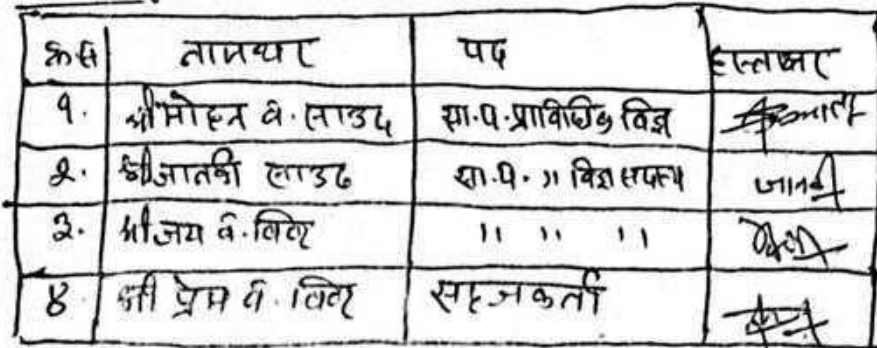 क्र.सं नामथर पद हस्ताक्षर
१. श्री मोहन व. लाउद सा.प. प्राविधिक विज्ञ
२. श्री जानकी लाउद सा.प. " विज्ञ सदस्य जानकी
३. श्री जय व. विटर " " "
४ श्री प्रेम व. विटर सहजकर्ता